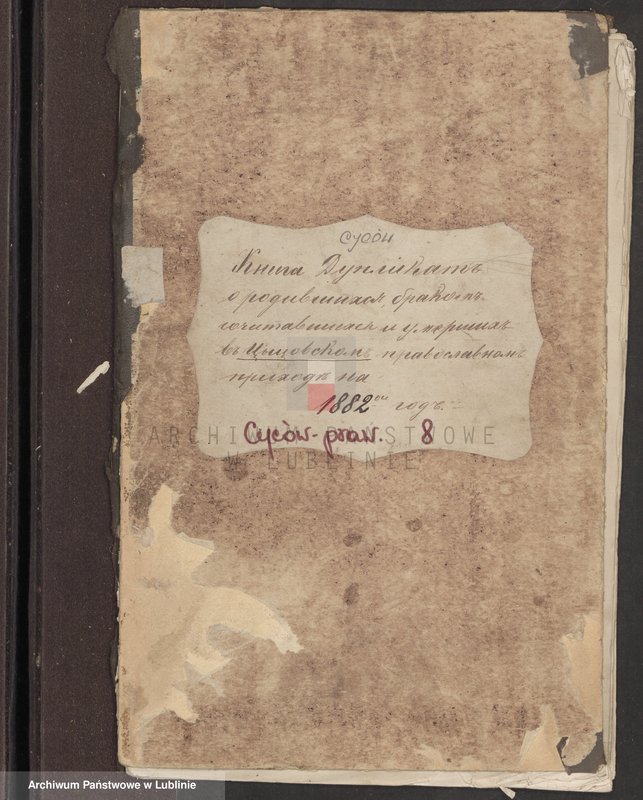 Cyców
Книга Дупликатъ
о родившихся, бракомъ
сочитавшихся и умершихъ
въ Цыцовскомъ православномъ
приходѣ на
1882 ой годъ.
Cyców-praw. 8
ARCHIWUM PAŃSTWOWE
W LUBLINIE
Archiwum Państwowe w Lublinie